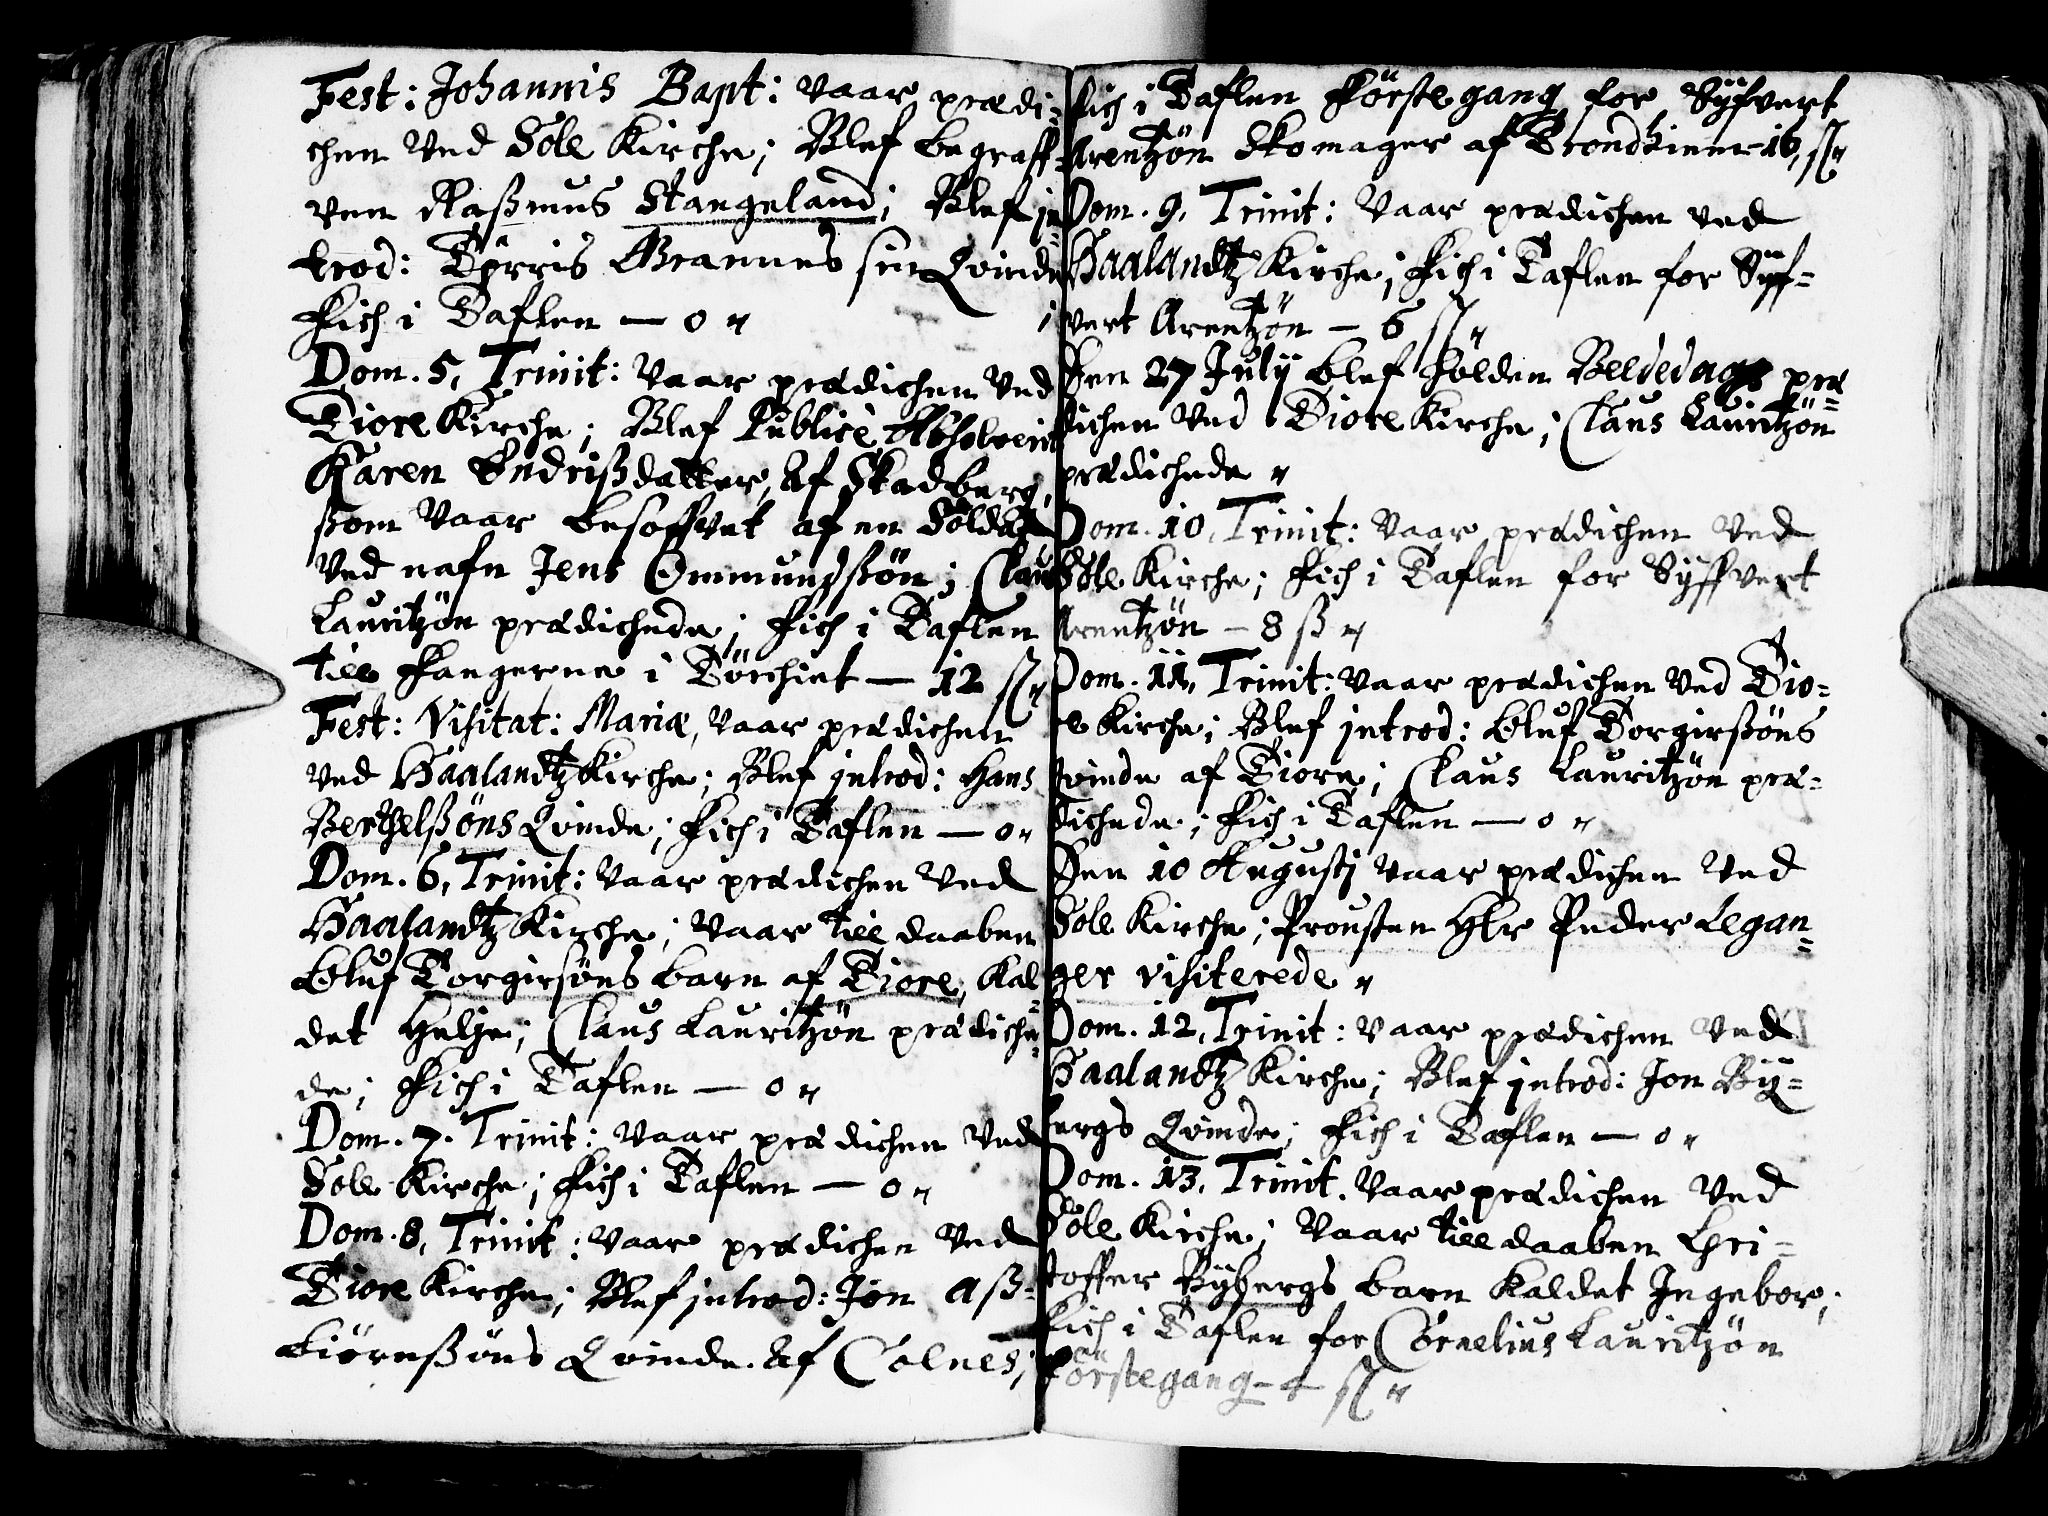 Fest: Johannis Bapt: vaar prædi-
chen ved Sole Kirche; Blef begraff-
ven Raßmus Stangeland; Blef in-
trod: Tørris Grannes sin Qvinde;
Fich i Taflen — 0 "
Dom. 5, Trinit: vaar prædichen ved
Tiore Kirche; Blef Publicè Absolverit
Karen Endrißdatter, af Skadberg,
ßom vaar besoffvet af en Soldat
ved nafn Jens Ommundßön; Claus
Lauritzön prædichede; Fich i Taflen
till Fangerne i Törchiet — 12 ſſ "
Fest: Visitat: Mariæ, vaar prædichen
ved Haalandtz Kirche; Blef introd: Hans
Berthelßöns Qvinde; Fich i Taflen — 0 "
Dom. 6, Trinit: vaar prædichen ved
Haalandtz Kirche; vaar till daaben
Oluf Torgirsöns barn af Tiore, Kal-
det Helje; Claus Lauritzön prædiche-
de; Fich i Taflen — 0 "
Dom. 7. Trinit: vaar prædichen ved
Sole Kirche; Fich i Taflen — 0 "
Dom. 8, Trinit: vaar prædichen ved
Tiore Kirche; Blef introd: Jon Aß-
biörnßöns Qvinde af Colnes;
Fich i Taflen Förstegang for Syfvert
Arentzön Skomager af Trondhiem - 16, ſſ "
Dom. 9, Trinit: vaar prædichen ved
Haalandtz Kirche; Fich i Taflen for Syf-
vert Arentzön — 6 ſſ "
Den 27 July blef holden Beldedags præ-
dichen ved Tiore Kirche; Claus Lauritzön
prædichede "
Dom. 10, Trinit: vaar prædichen ved
Sole Kirche; Fich i Taflen for Syffvert
Arentzön — 8 ß "
Dom. 11, Trinit: vaar prædichen ved Tio-
re Kirche; Blef introd: Oluf Torgirßöns
Qvinde af Tiore; Claus Lauritzön præ-
dichede; Fich i Taflen — 0 "
Den 10 Augustj vaar prædichen ved
Sole Kirche; Prousten Hlr Peder Legan-
ger visiterede "
Dom. 12, Trinit: vaar prædichen ved
Haalandtz Kirche; Blef introd: Jon By-
bergs Qvinde; Fich i Taflen — 0 "
Dom. 13, Trinit. vaar prædichen ved
Sole Kirche; vaar till daaben Chri-
stoffer Bybergs barn Kaldet Ingebor;
Fich i Taflen for Cornelius Lauritzön
Förstegang - 4 ſſ "